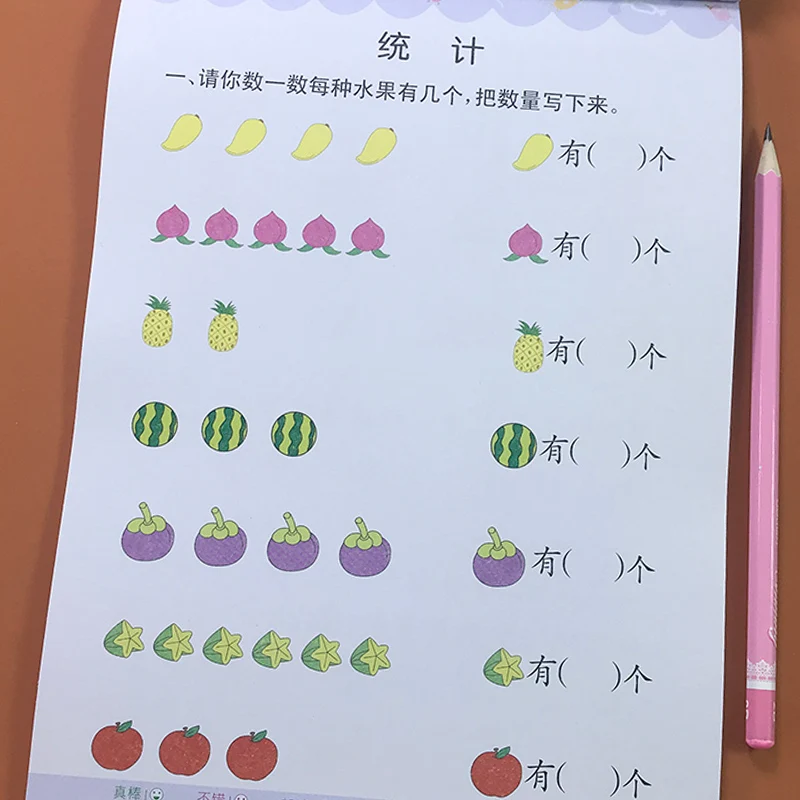 统 计
一、请你数一数每种水果有几个，把数量写下来。
有( )个
有( )个
有( )个
有( )个
有( )个
有( )个
有( )个
真棒! 不错!